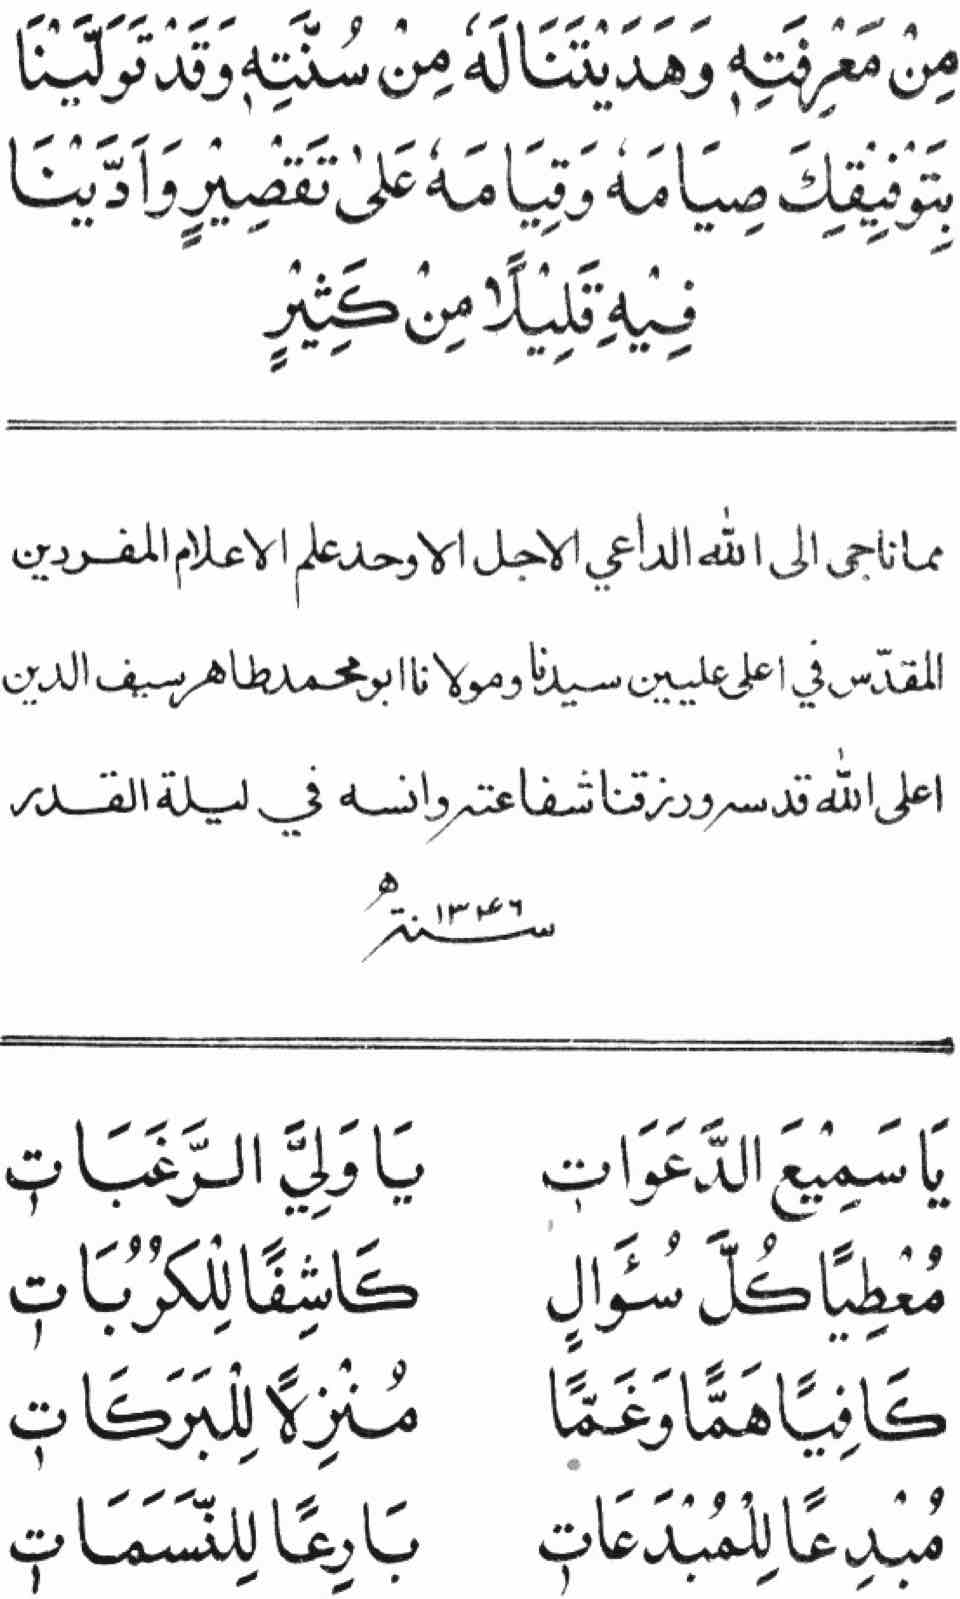 مِنْ مَعْرِفَتِهٖ وَهَدَيْتَنَا لَهٗ مِنْ سُنَّتِهٖ وَقَدْ تَوَلَّيْنَا
بِتَوْفِيْقِكَ صِيَامَهٗ وَقِيَامَهٗ عَلىٰ تَقْصِيْرٍ وَاَدَّيْنَا
فِيْهِ قَلِيْلًا مِنْ كَثِيْرٍ
مما ناجى الى الله الداعي الاجل الاوحد علم الاعلام المفردين
المقدّس في اعلى عليين سيدنا ومولانا ابو محمد طاهر سيف الدين
اعلى الله قدسه ورزقنا شفاعته وانسه في ليلة القدر
سنة ١٣٤٦ ه
يَا سَمِيْعَ الدَّعَوَاتِ يَا وَلِيَّ الرَّغَبَاتِ
مُعْطِيًا كُلَّ سُؤَالٍ كَاشِفًا لِلْكُرُبَاتِ
كَافِيًا هَمًّا وَغَمًّا مُنْزِلًا لِلْبَرَكَاتِ
مُبْدِعًا لِلْمُبْدَعَاتِ بَارِعًا لِلنَّسَمَاتِ